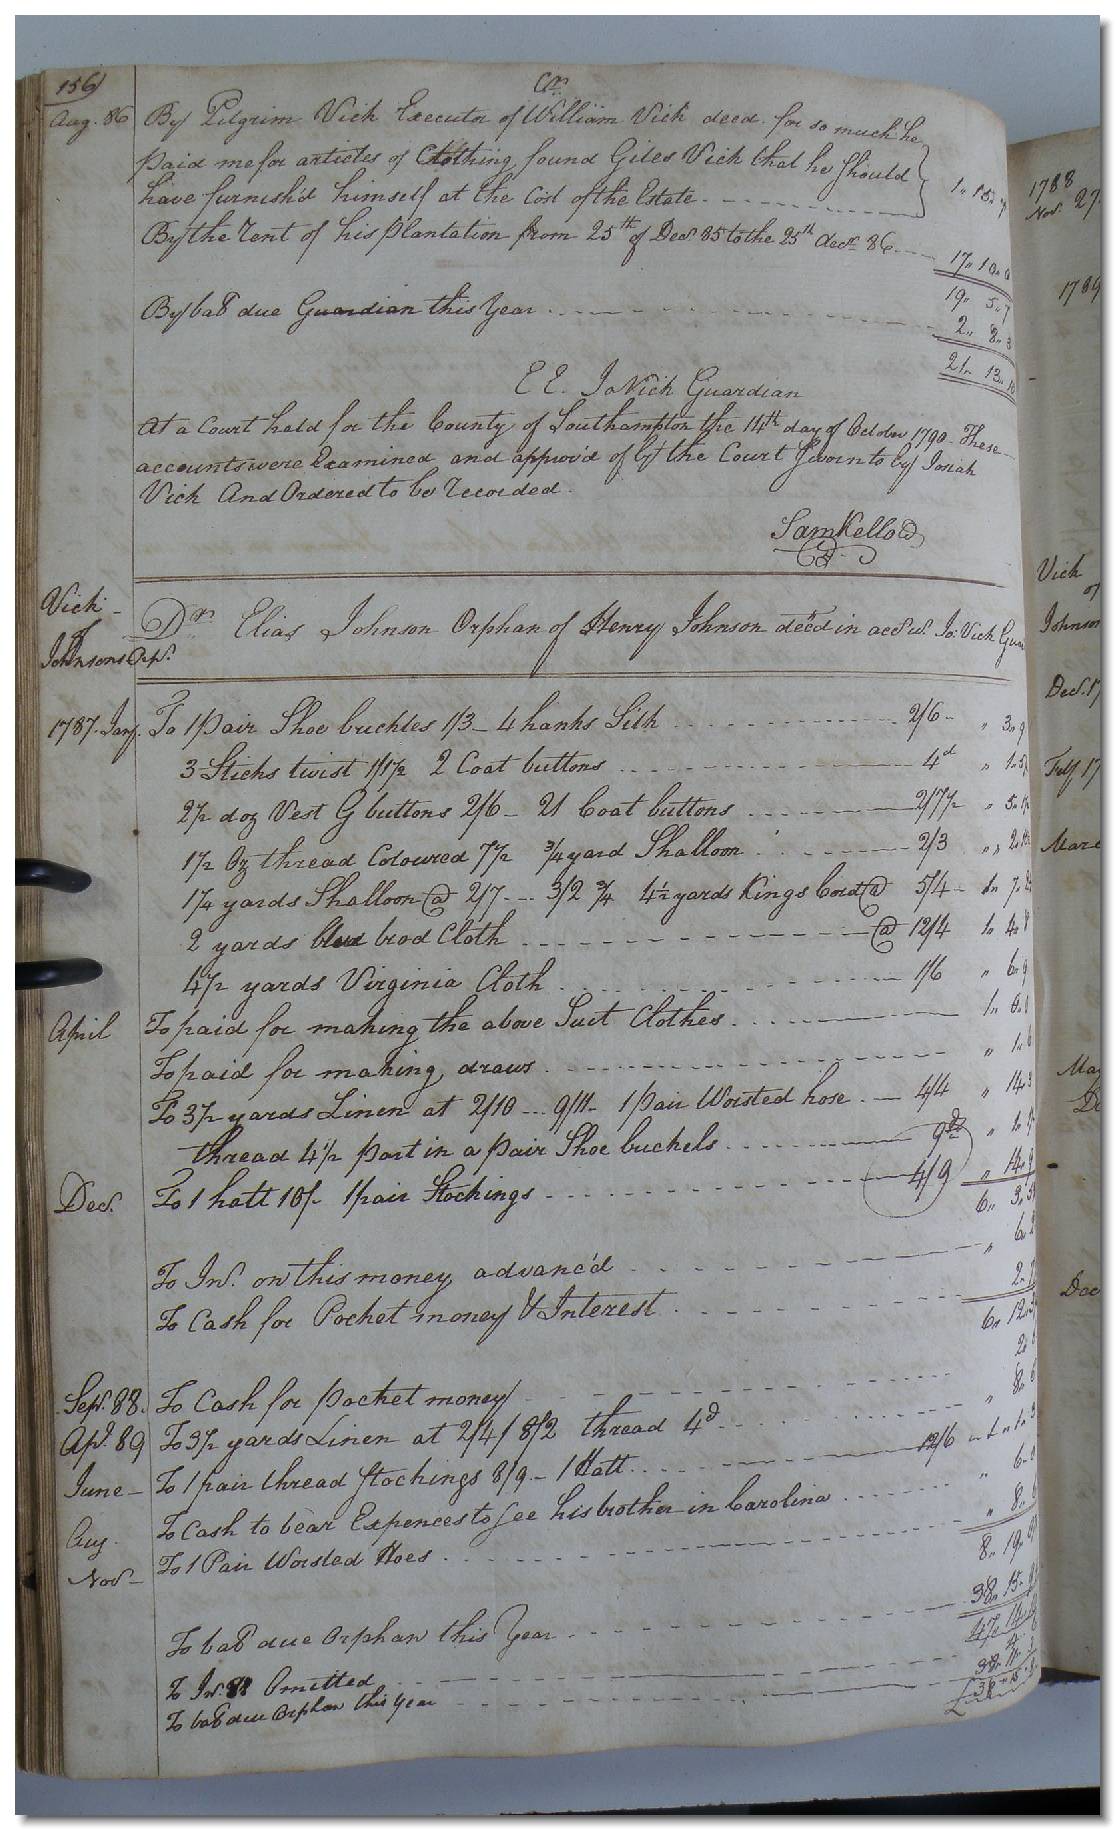 156
Cr.
Aug. 86 By Pilgrim Vick Executor of William Vick deced. for so much he
paid me for articles of Clothing found Giles Vick that he should
have furnish'd himself at the Cost of the Estate 1.. 15.. 7
By the rent of his Plantation from 25th of Decr 85 to the 25th decr 86 17.. 10.. 0
19.. 5.. 7
By bal due Guardian this Year 2.. 8.. 3
21.. 13.. 10
E E. Jo Vick Guardian
At a Court held for the County of Southampton the 14th day of October 1790. These
accounts were Examined and approv'd of by the Court Sworn to by Josiah
Vick And Ordered to be recorded.
Sam Kello
Vick
Johnsons Orp.
Dr. Elias Johnson Orphan of Henry Johnson deced in acct w. Jo: Vick Guar
1787. Jany. To 1 pair Shoe buckles 1/3 - 4 hanks Silk 2/6 - " 3.. 9
3 Sticks twist 1/1½ 2 Coat buttons 4d
2½ doz Vest G buttons 2/6 - 21 Coat buttons 2/7½
1½ Oz thread Coloured 7½ ¾ yard Shalloon 2/3
1¼ yards Shalloon @ 2/7 - 3/2 ¾ 4½ yards Kings Cord @ 5/4
2 yards blue brod Cloth @ 12/4 1.. 4.. 8
4½ yards Virginia Cloth 1/6 " 6.. 9
April To paid for making the above Suit Clothes
To paid for making draws
To 3½ yards Linen at 2/10 - 9/11 - 1 pair Worsted hose - 4/4 " 14.. 3
thread 4½ part in a pair Shoe buckels
Dec. To 1 hatt 10/- 1 pair Stockings 4/9 " 14.. 9
To Int. on this money advanc'd
To Cash for Pocket money & Interest
Sepr. 88. To Cash for pocket money
Apl. 89 To 3½ yards Linen at 2/4 / 8/2 thread 4d
June - To 1 pair thread Stockings 8/9 - 1 Hatt 12/6
Aug. To Cash to bear Expences to See his brother in Carolina
Nov - To 1 Pair Worsted Hoes
To bal due Orphan this Year
To Int. Omitted
To bal due Orphan this Year
1788
Nov. 27
1789
Vick
Johnson
Dec. 17
Feby 17